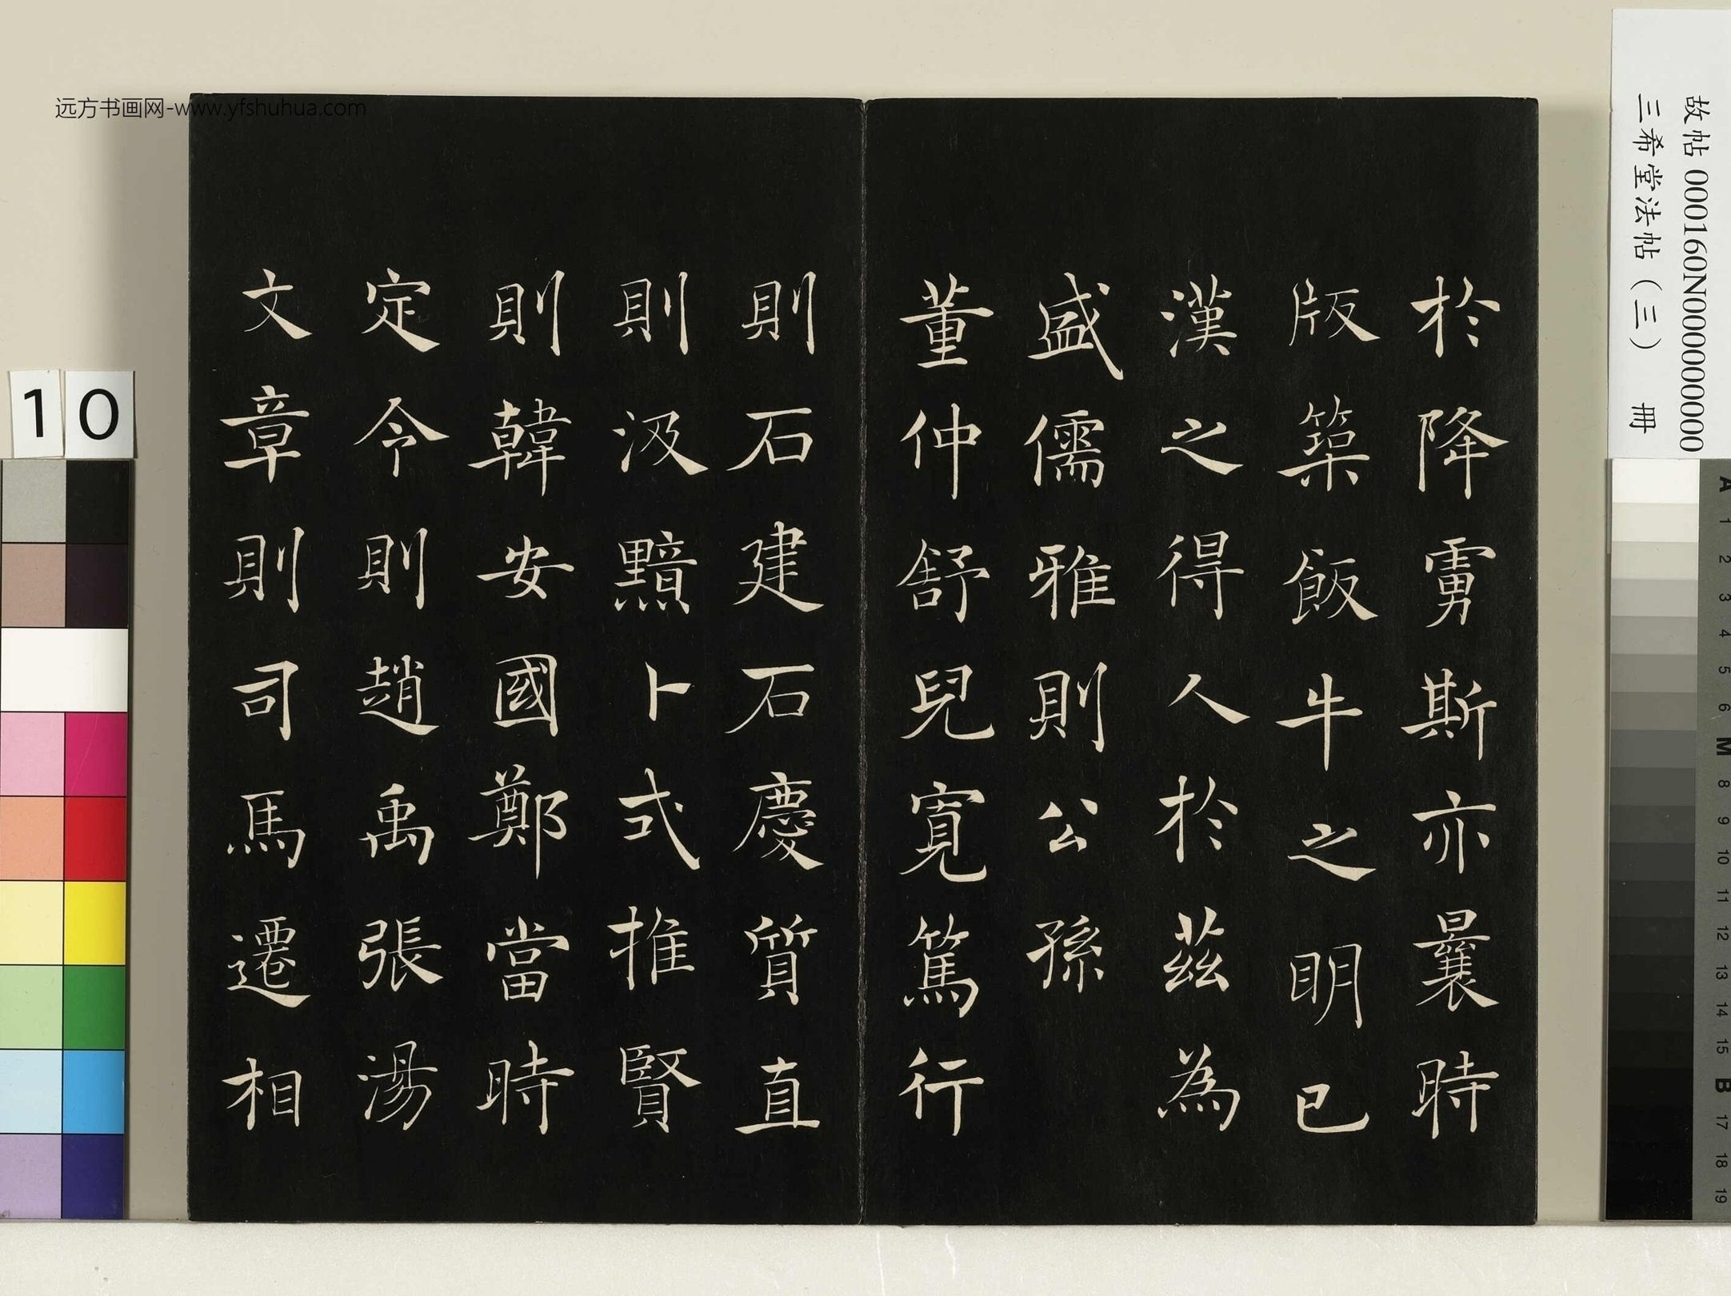 於降虜斯亦曩時
版築飯牛之明已
漢之得人於茲為
盛儒雅則公孫
董仲舒兒寬篤行
則石建石慶質直
則汲黯卜式推賢
則韓安國鄭當時
定令則趙禹張湯
文章則司馬遷相
远方书画网-www.yfshuhua.com
故帖 000160N000000000
三希堂法帖（三） 冊
10
A 1 2 3 4 5 6 M 8 9 10 11 12 13 14 15 B 17 18 19